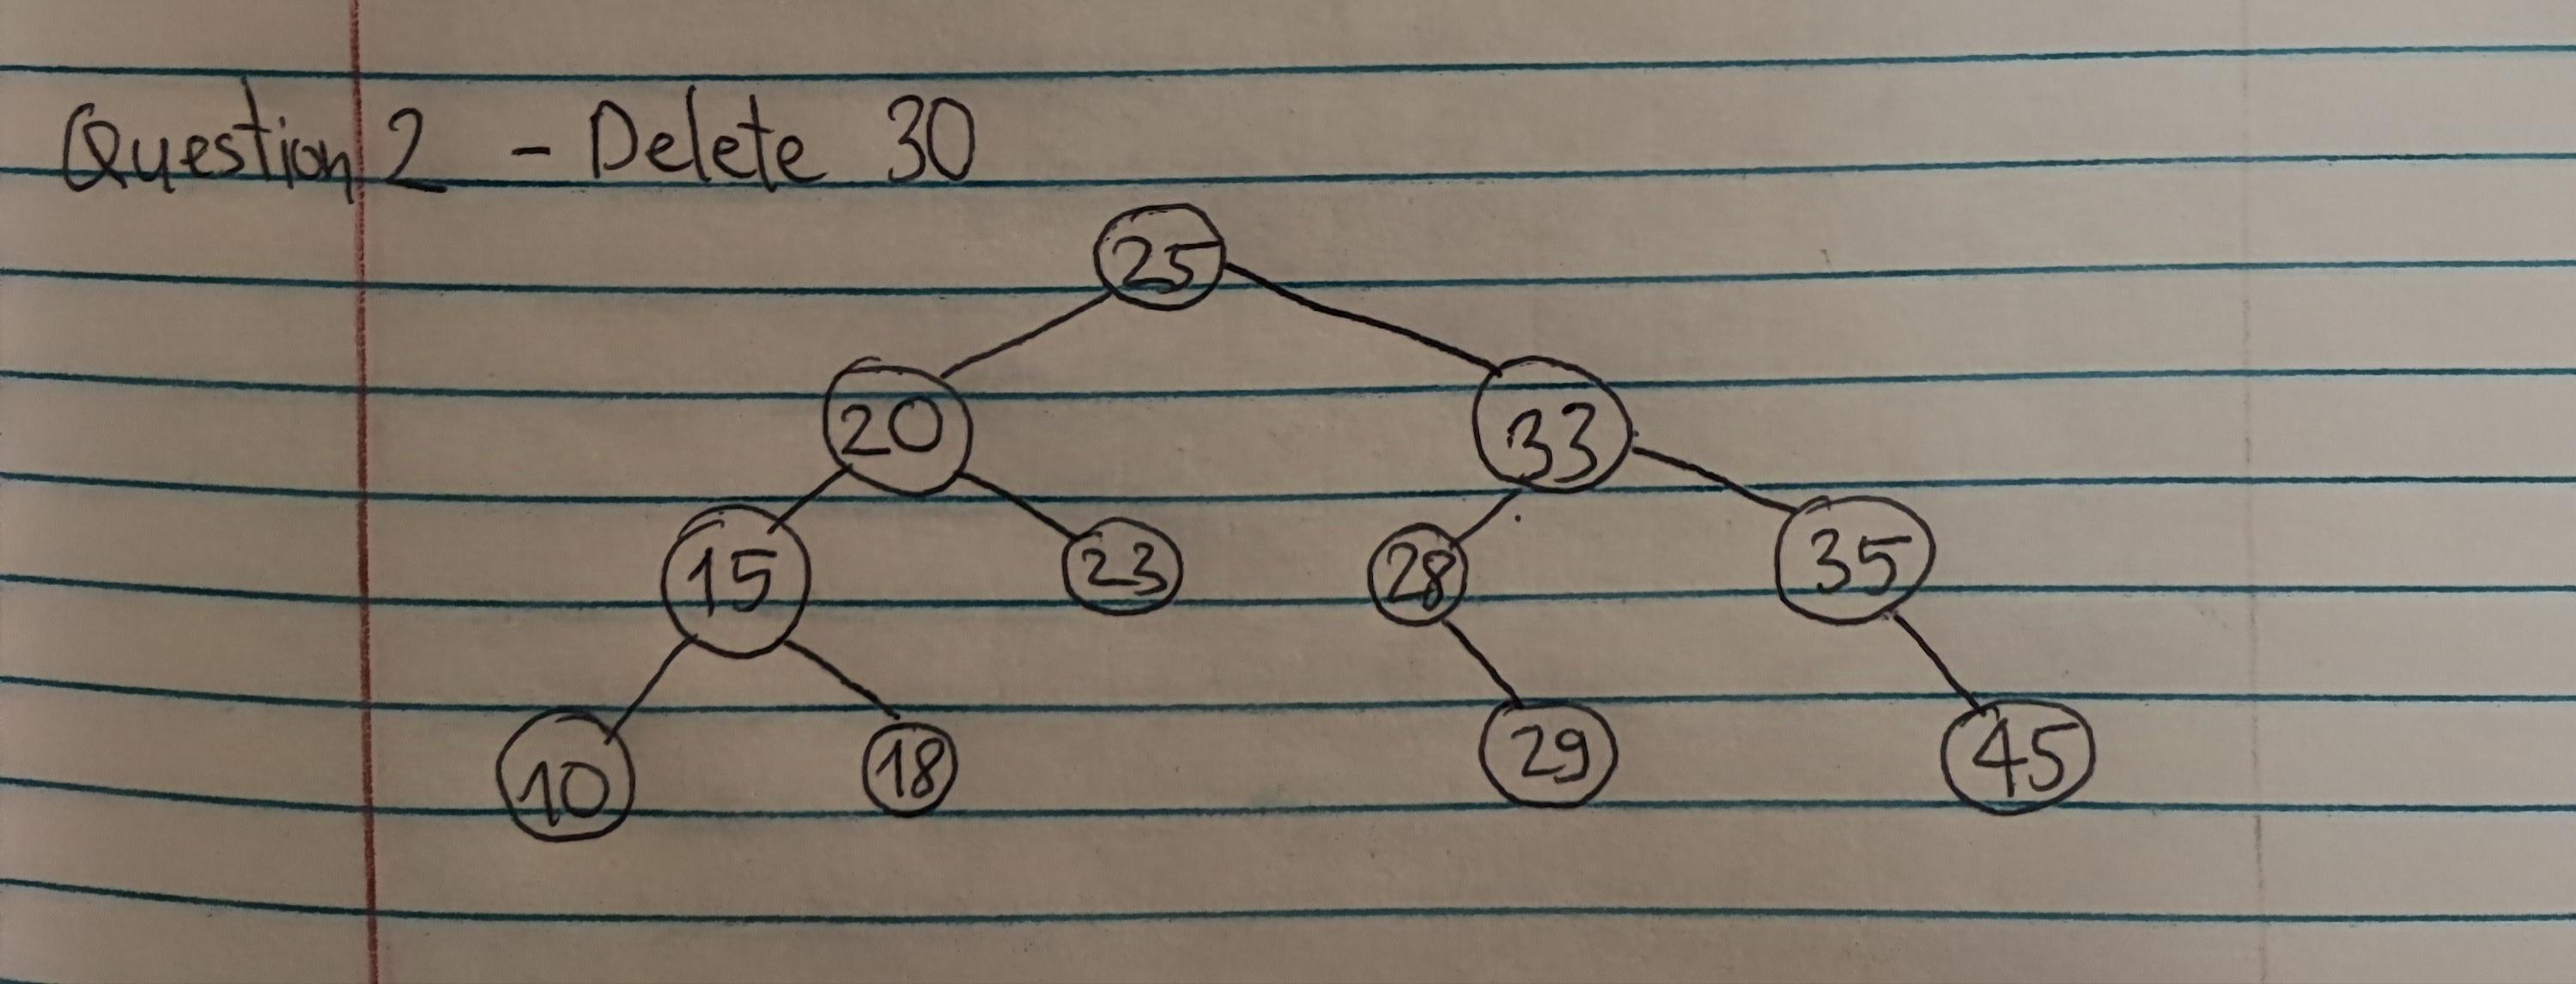 Question 2 - Delete 30
25
20 33
15 23 28 35
10 18 29 45